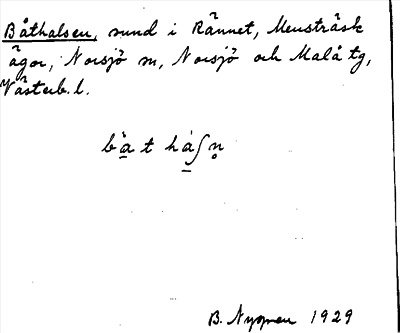 Båthalsen, sund i Rännet, Mensträsk
ägor, Norsjö sn, Norsjö och Malå tg,
Västerb. l.
B. Nyman 1929